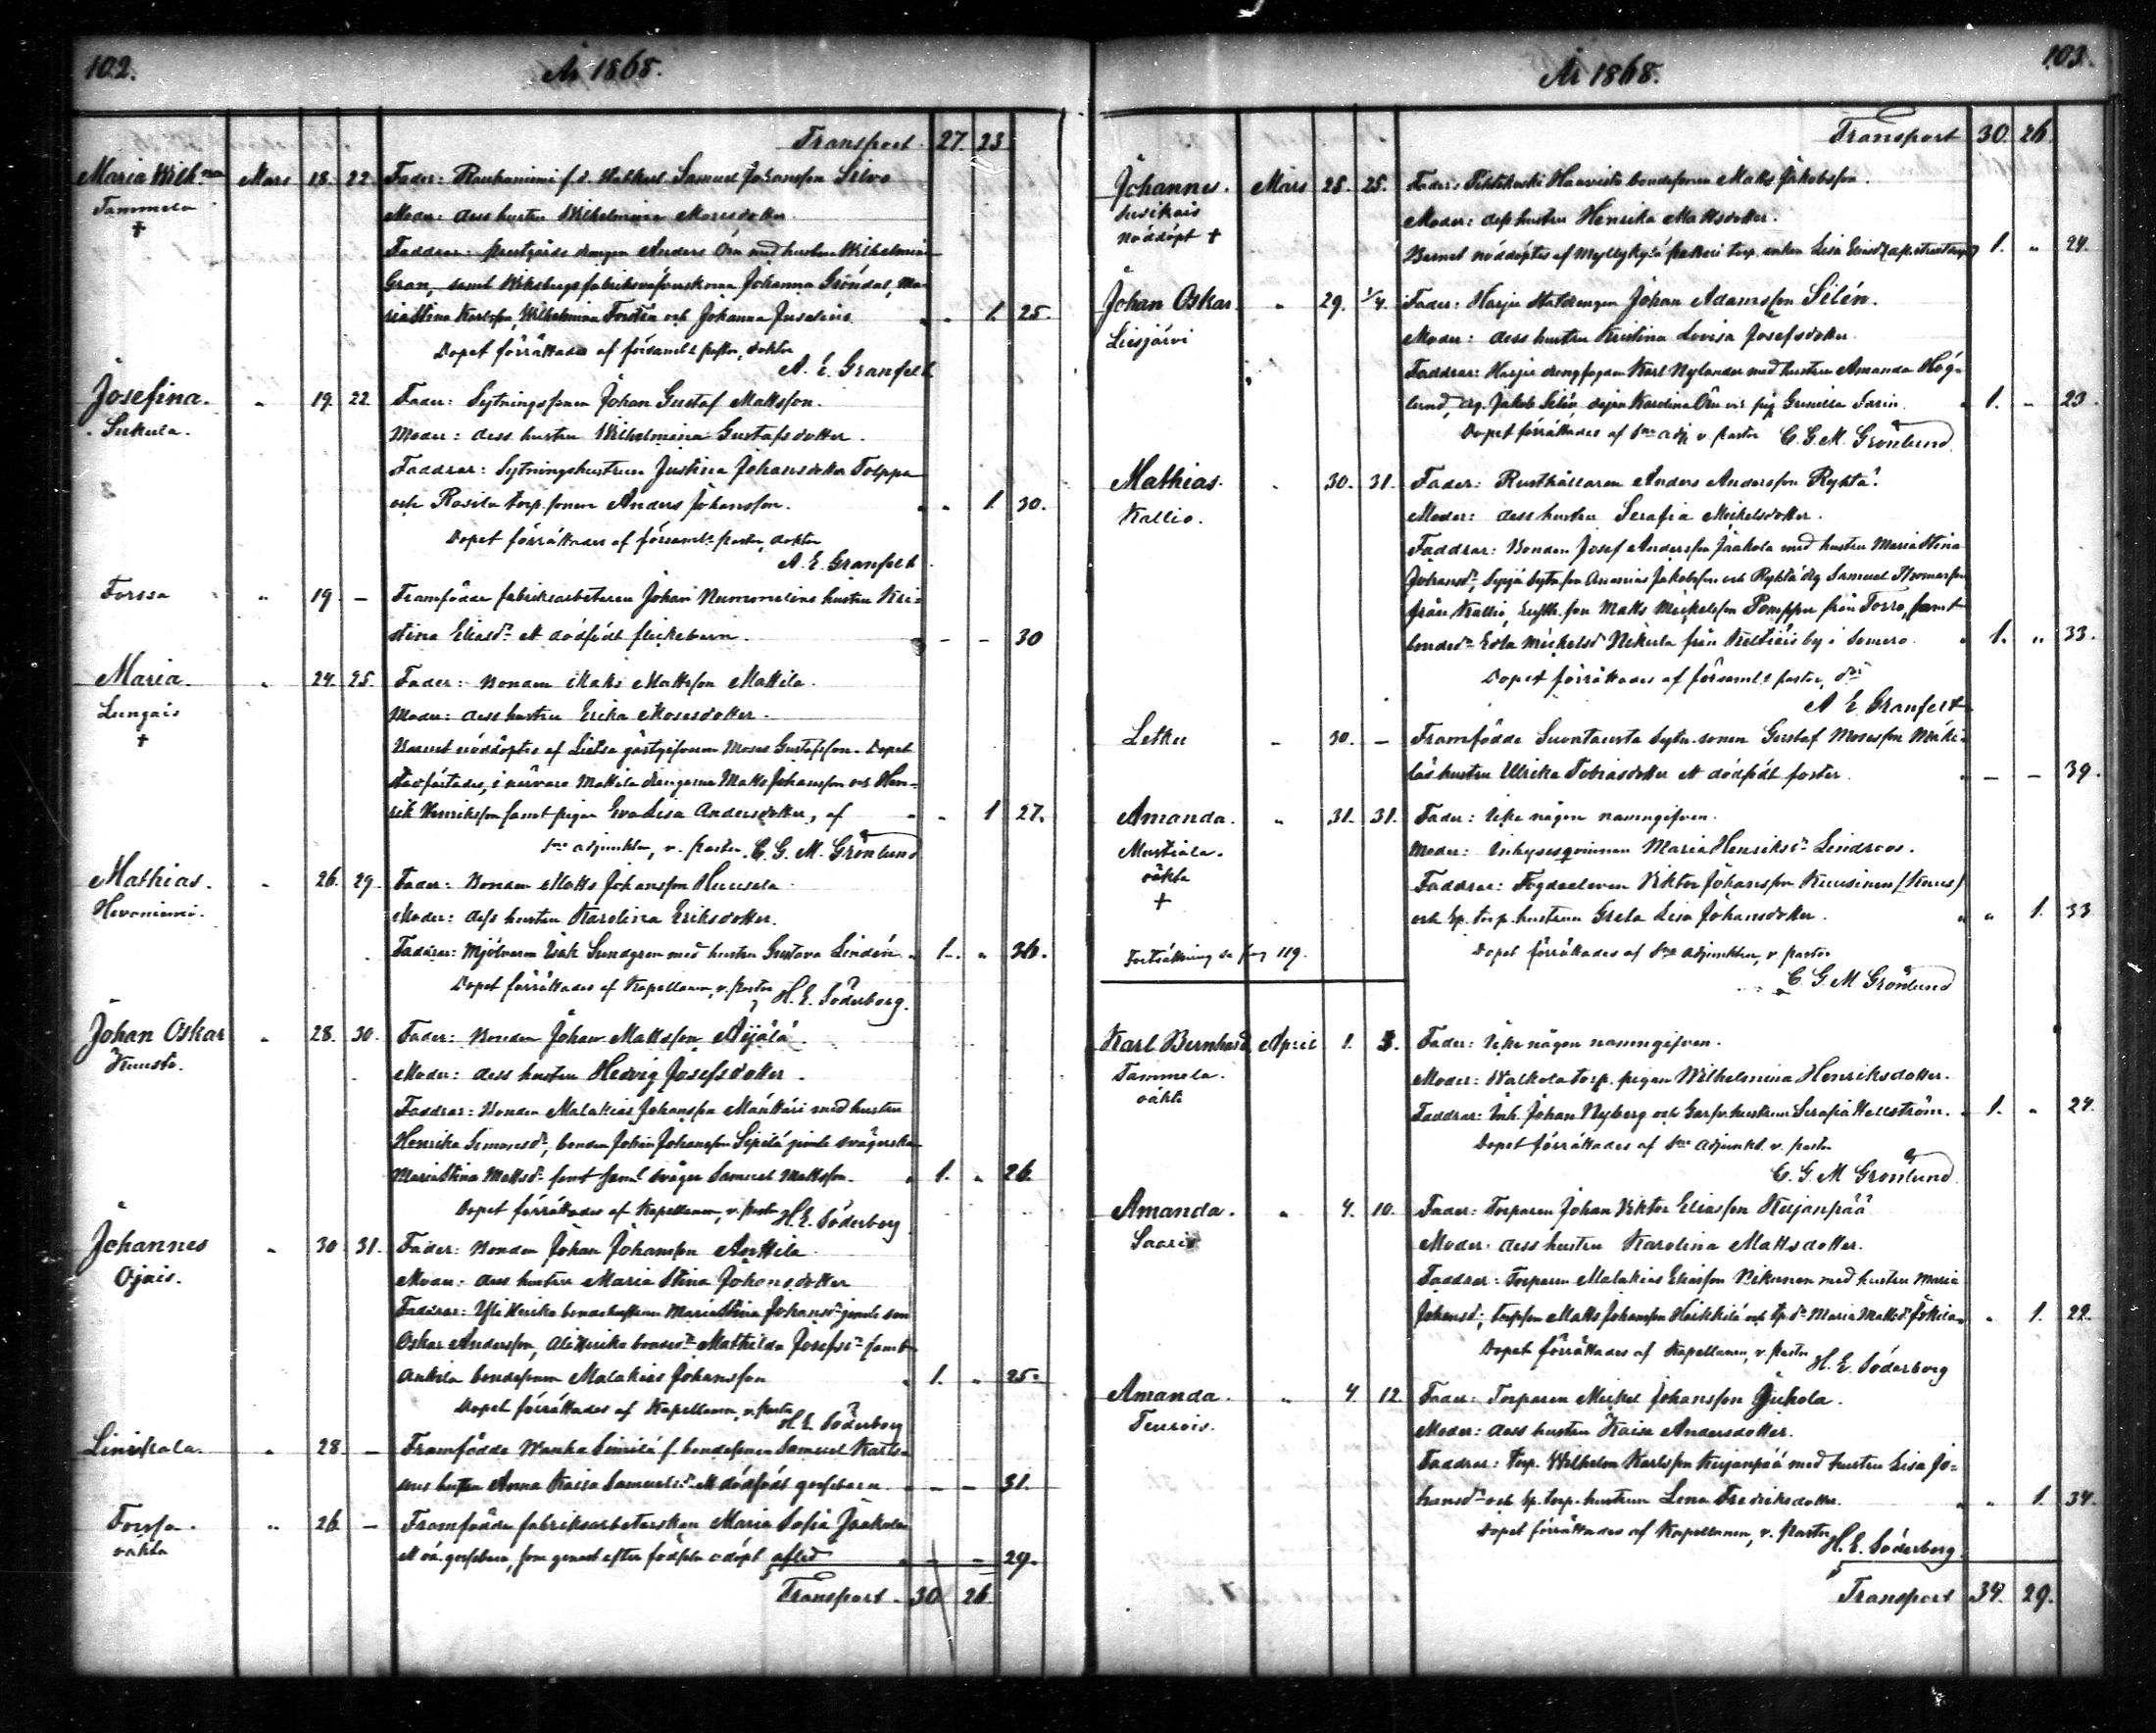 102.
År 1868.
Transport 27. 23
Maria Wilhna Mars 18. 22 Fader: Rauhaniemi f.d. Samuel Johansson Silvo
Tammela
†
Moder: dess hustru Wilhelmina Mosesdotter.
Faddrar: drengen Anders Örn med hustru Wilhelmina
Gran, samt Johanna Gröndal, Ma-
ria Stina Karlsson, Wilhelmina Forstén och Johanna Juselius " 1. 25.
Dopet förrättades af församls pastor, doktor
A. E. Granfelt.
Josefina. " 19. 22. Fader: Sytningssonen Johan Gustaf Mattsson.
Sukula.
Moder: dess hustru Wilhelmina Gustafsdotter.
Faddrar: Sytningshustrun Justina Johansdotter Tolppa
och Rasila torp.sonen Anders Johansson. " 1. 30.
Dopet förrättades af församls pastor, doktor
A. E. Granfelt
Forssa " 19. – Framfödde fabriksarbetaren Johan Nummelins hustru Kri-
stina Eliasdr ett dödfödt flickebarn. – – 30
Maria. " 24. 25. Fader: Bonden Matts Mattsson Mattila.
Lungais
†
Moder: dess hustru Erika Mosesdotter.
Barnet nöddöptes af gästgifvaren Moses Gustafsson. Dopet
stadfästades, i närvaro Mattila drengarne Matts Johansson och Hen-
rik Henriksson samt pigan Eva Lisa Andersdotter, af " 1 27.
adjunkten, v. pastor C. G. M. Grönlund
Mathias. " 26. 29. Fader: Bonden Matts Johansson Huusela.
Hevoniemi.
Moder: dess hustru Karolina Eriksdotter.
Faddrar: Mjölnaren Isak Sundgren med hustru Gustava Lindén. 1. " 36.
Dopet förrättades af Kapellanen, v. Pastor H. E. Söderborg.
Johan Oskar " 28. 30. Fader: Bonden Johan Mattsson Äijälä.
Kuusto.
Moder: dess hustru Hedvig Josefsdotter.
Faddrar: Bonden Malakias Johansson Mänttäri med hustru
Henrika Simonsdr, bonden Johan Johansson Sipilä jemte svägerskan
Maria Stina Mattsdr samt svåger Samuel Mattsson. 1. " 26.
Dopet förrättades af Kapellanen, v. Pastor H. E. Söderborg
Johannes " 30 31. Fader: Bonden Johan Johansson Anttila.
Ojais.
Moder: dess hustru Maria Stina Johansdotter
Faddrar: bondehustrun Maria Stina Johansdr jemte son
Oskar Andersson, bondedr Mathilda Josefsdr samt
Anttila bondesonen Malakias Johansson 1. " 25.
Dopet förrättades af Kapellanen, v. Pastor
H. E. Söderborg
Liesjärvi " 28. – Framfödde Wanha f. bondesonen Samuel Karls-
sons hustru Anna Kaisa Samuelsdr ett dödfödt gossebarn. – – 31.
Forssa. " 26. – Framfödde fabriksarbeterskan Maria Sofia Jaakola
oäkta
ett oä. gossebarn, som genast efter födseln odöpt afled – – 29.
Transport. 30 26
År 1868.
103.
Transport 30. 26
Johannes. Mars 25. 25. Fader: Haavisto bondesonen Matts Jakobsson.
Susikais
Nöddöpt †
Moder: dess hustru Henrika Mattsdotter.
Barnet nöddöptes af torp. enkan Lisa 1. " 24.
Johan Oskar. " 29. 1/4. Fader: Harju Johan Adamsson Silén.
Liesjärvi
Moder: dess hustru Kristina Lovisa Josefsdotter.
Faddrar: Harju drengfogden Karl Nylander med hustru Amanda Hög-
lund, drg. Jakob Silén, dejan Karolina Örn och pig. Gunilla Farin. 1. " 23.
Dopet förrättades af adj. v. Pastor C. G. M. Grönlund.
Mathias. " 30. 31. Fader: Rusthållaren Anders Andersson Ryhtä.
Kallio.
Moder: dess hustru Serafia Mickelsdotter.
Faddrar: Bonden Josef Andersson Jaakola med hustru Maria Stina
Johansdr, Ananias Jakobsson och Ryhtä drg Samuel Thomasson
från Kallio, Matts Mickelsson Pomppu från Torro, samt
bondedr Edla Mickelsdr från by i Somero. 1. " 33.
Dopet förrättades af församls pastor, dr
A. E. Granfelt
Letku " 30. – Framfödde Suontausta sytn.sonen Gustaf Mosesson Mäki-
läs hustru Ulrika Tobiasdotter ett dödfödt foster. – – 39.
Amanda. " 31. 31. Fader: Icke någon namngifven.
Mustiala.
oäkta
†
Moder: Inhysesqvinnan Maria Henriksdr Lindroos.
Faddrar: Fogdeeleven Viktor Johansson Kuusinen (Kuus)
och Sp. torp.hustrun Greta Lisa Johansdotter. " 1. 33
Dopet förrättades af adjunkten, v. Pastor
C. G. M. Grönlund
Fortsättning se pag 119.
Karl Bernhard April 1. 3. Fader: Icke någon namngifven.
Tammela.
oäkta
Moder: Walkola torp. pigan Wilhelmina Henriksdotter.
Faddrar: Inh. Johan Nyberg och Garfv.hustrun Serafia Hellström. 1. " 24.
Dopet förrättades af adjunkt. v. Pastor
C. G. M. Grönlund.
Amanda. " 4. 10. Fader: Torparen Johan Viktor Eliasson Kujanpää
Saaris
Moder: dess hustru Karolina Mattsdotter.
Faddrar: Torparen Malakias Eliasson med hustru Maria
Johansdr, torpson Matts Johansson Heikkilä och tpdr Maria Mattsdr " 1. 22.
Dopet förrättades af Kapellanen, v. Pastor
H. E. Söderborg
Amanda. " 4. 12. Fader: Torparen Mickel Johansson Jukola.
Teurois.
Moder: dess hustru Kaisa Andersdotter.
Faddrar: Torp. Wilhelm Karlsson Kujanpää med hustru Lisa Jo-
hansdr och Sp. torp. hustrun Lena Fredriksdotter. " 1. 34.
Dopet förrättades af Kapellanen, v. Pastor
H. E. Söderborg.
Transport 34. 29.